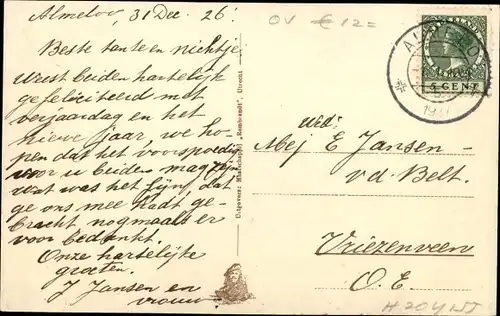 Almeloo, 31 Dec. 26.
Beste tante en nichtje
Weest beiden hartelijk
gefeliciteerd met
verjaardag en het
nieuwe jaar, we ho-
pen dat het voorspoedig
voor u beiden mag zijn
wat was het fijn, dat
ge ons mee hadt ge-
bracht nogmaals er
voor bedankt.
Onze hartelijke
groeten.
J Jansen en
vrouw
Uitgevers: Maatschappij „Rembrandt", Utrecht
OV € 12=
5 CENT
Wed:
Mej E Jansen-
v.d. Belt.
Vriezenveen
O. E.